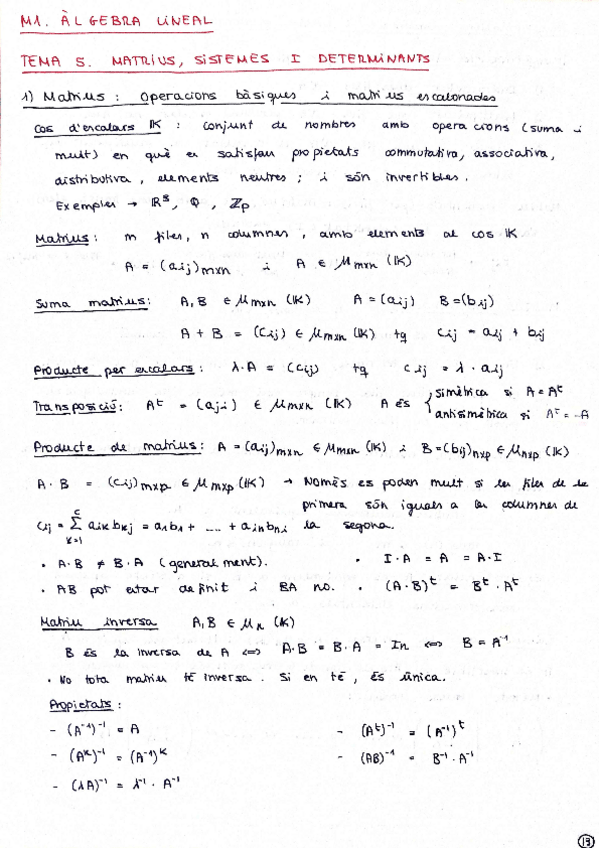 M1. ÀLGEBRA LINEAL
TEMA 5. MATRIUS, SISTEMES I DETERMINANTS
1) Matrius: Operacions bàsiques i matrius escalonades
Cos d'escalars K : conjunt de nombres amb operacions (suma i
mult) en què es satisfan propietats commutativa, associativa,
distributiva, elements neutres; i són invertibles.
Exemples → ℝ, ℚ, ℤp
Matrius: m files, n columnes, amb elements al cos K
A = (aij)mxn i A ∈ Mmxn (K)
Suma matrius: A,B ∈ Mmxn (K) A=(aij) B=(bij)
A + B = (cij) ∈ Mmxn (K) tq cij = aij + bij
Producte per escalars: λ·A = (cij) tq cij = λ·aij
Transposició: Aᵗ = (aji) ∈ Mmxn (K) A és { simètrica si A = Aᵗ
antisimètrica si Aᵗ = -A
Producte de matrius: A = (aij)mxn ∈ Mmxn (K) i B=(bij)nxp ∈ Mnxp (K)
A·B = (cij)mxp ∈ Mmxp (K) → Només es poden mult si les files de la
primera són iguals a les columnes de
cij = Σ aik bkj = a1b1 + .... + ainbni la segona.
· A·B ≠ B·A (generalment). · I·A = A = A·I
· AB pot estar definit i BA no. · (A·B)ᵗ = Bᵗ·Aᵗ
Matriu inversa A,B ∈ Mn (K)
B és la inversa de A <=> A·B = B·A = In <=> B = A⁻¹
· No tota matriu té inversa. Si en té, és única.
Propietats:
- (A⁻¹)⁻¹ = A - (Aᵗ)⁻¹ = (A⁻¹)ᵗ
- (Aᵏ)⁻¹ = (A⁻¹)ᵏ - (AB)⁻¹ = B⁻¹·A⁻¹
- (λA)⁻¹ = λ⁻¹·A⁻¹